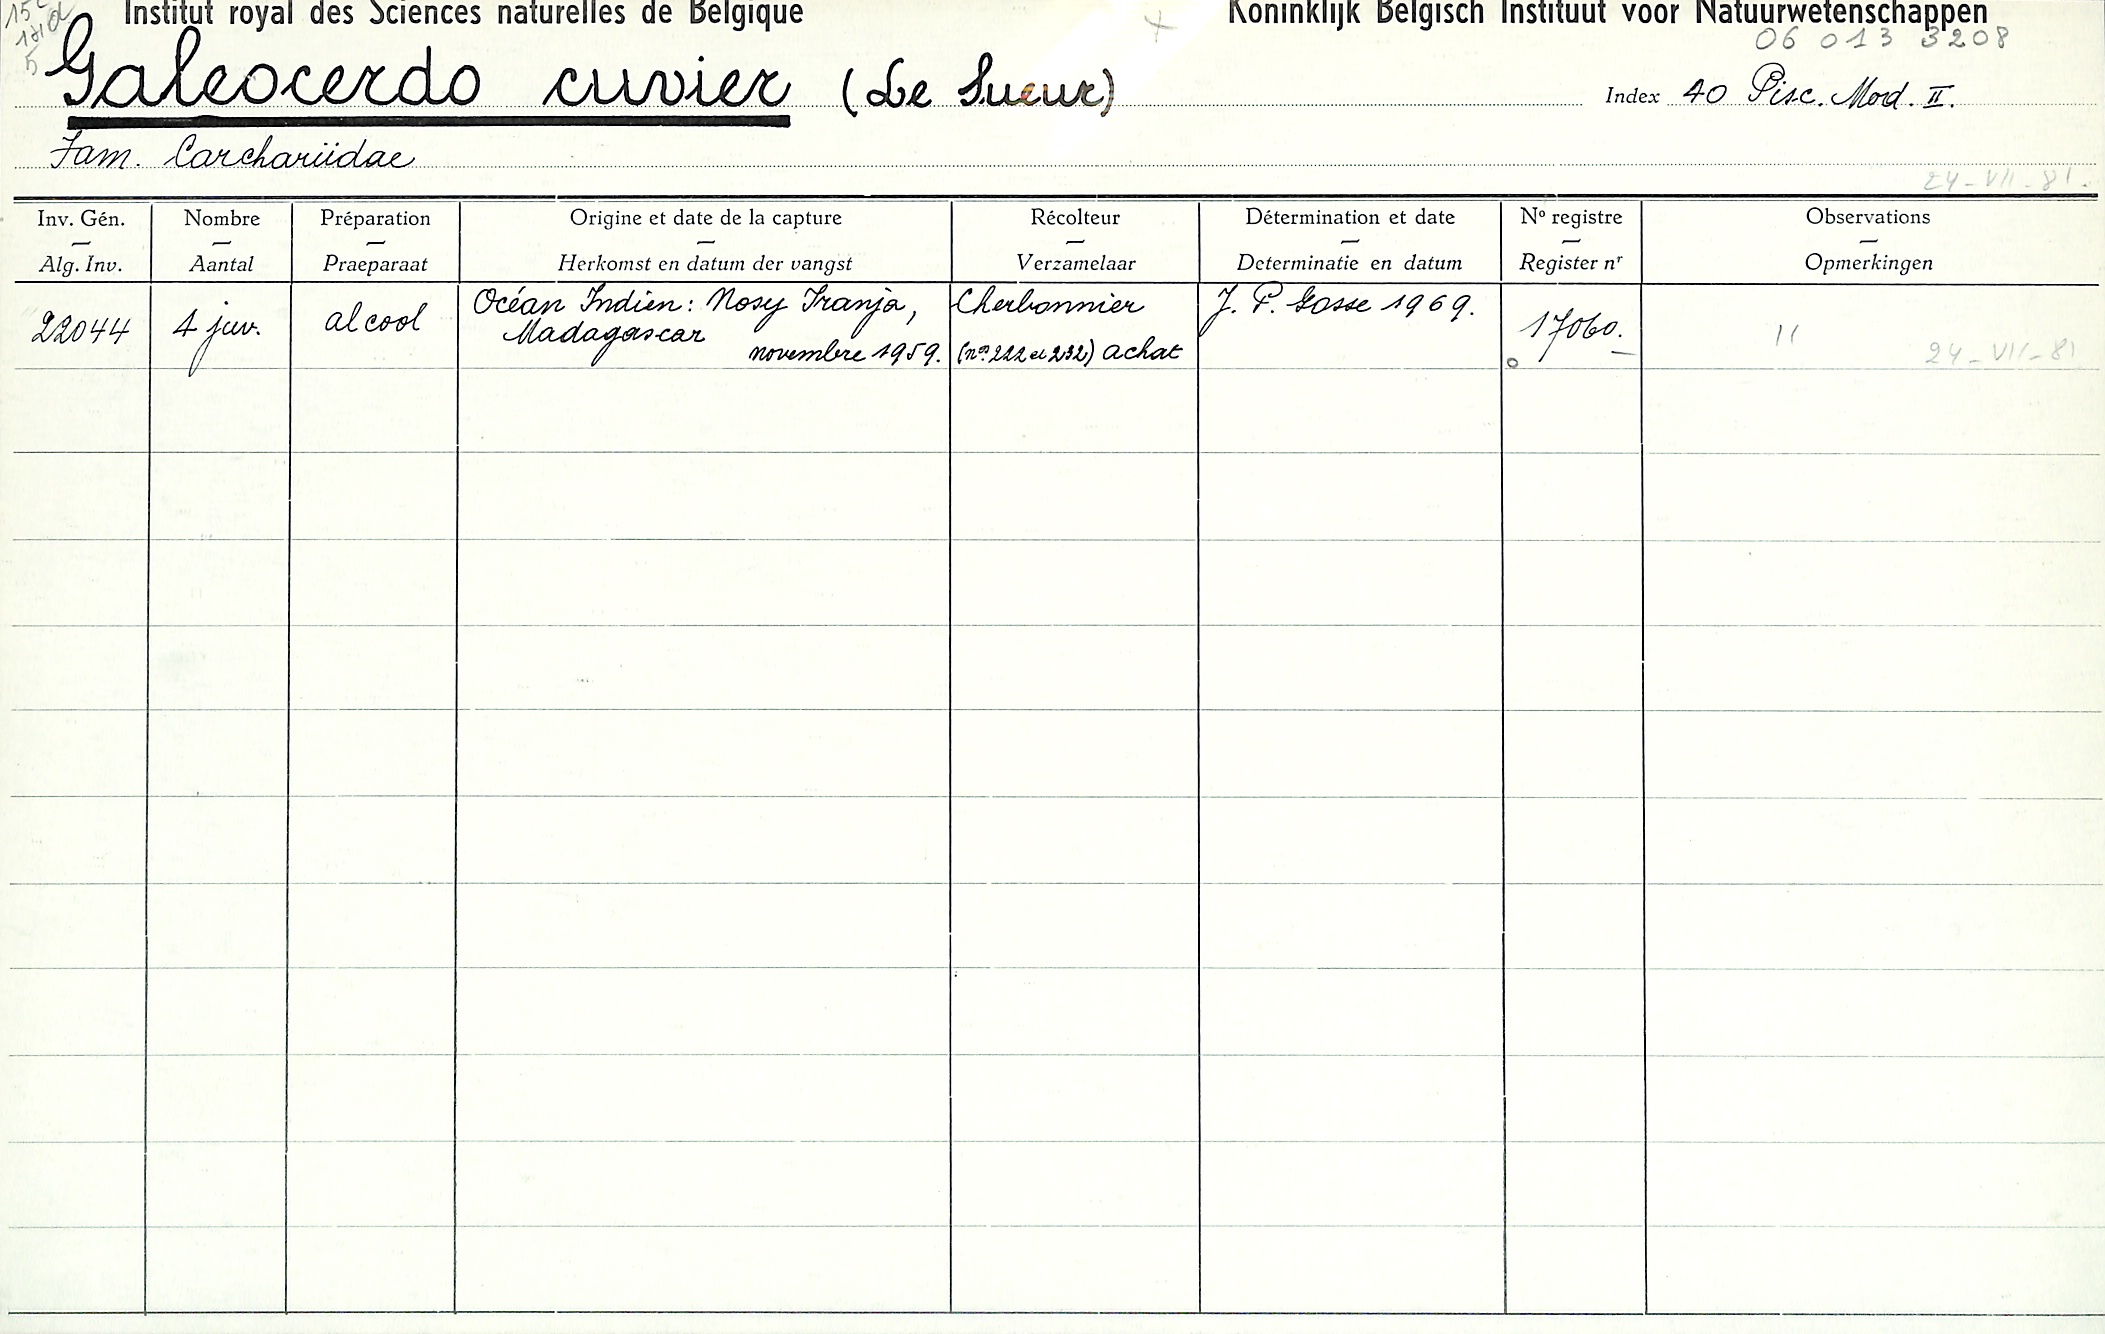 Institut royal des Sciences naturelles de Belgique
Koninklijk Belgisch Instituut voor Natuurwetenschappen
06 013 3208
Galeocerdo cuvier (Le Sueur)
Index 40 Pisc. Mod. II.
Fam. Carchariidae
24-VII-81.
Inv. Gén. — Alg. Inv.
Nombre — Aantal
Préparation — Praeparaat
Origine et date de la capture — Herkomst en datum der vangst
Récolteur — Verzamelaar
Détermination et date — Determinatie en datum
Nº registre — Register nr
Observations — Opmerkingen
22044
4 juv.
alcool
Océan Indien: Nosy Iranja,
Madagascar
novembre 1959.
Cherbonnier
(nos 222 et 232) achat
J. P. Gosse 1969.
17060.
11
24-VII-81